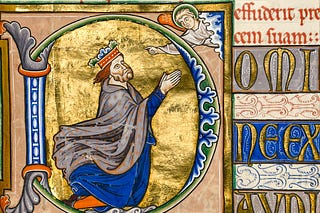 effuderit pre
cem suam::
D
OMI
NEEX
AUDI